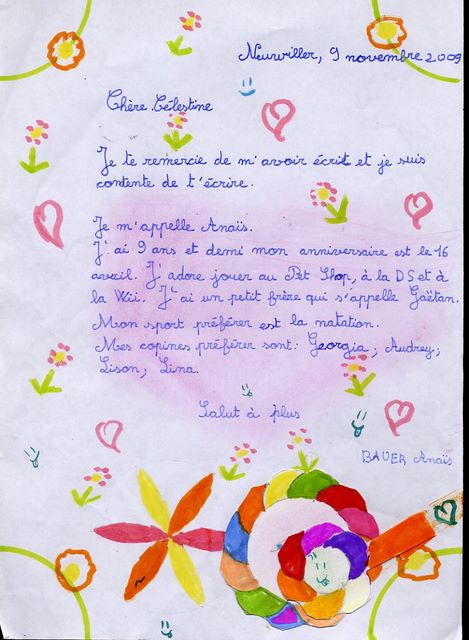 Neuwiller, 9 novembre 2009
Chère Célestine
Je te remercie de m'avoir écrit et je suis
contente de t'écrire.
Je m'appelle Anaïs.
J'ai 9 ans et demi mon anniversaire est le 16
avril. J'adore jouer au Pet Shop, à la DS et à
la Wii. J'ai un petit frère qui s'appelle Gaëtan.
Mon sport préférer est la natation.
Mes copines préférer sont: Georgia; Audrey;
Lison; Lina.
Salut à plus
BAUER Anaïs